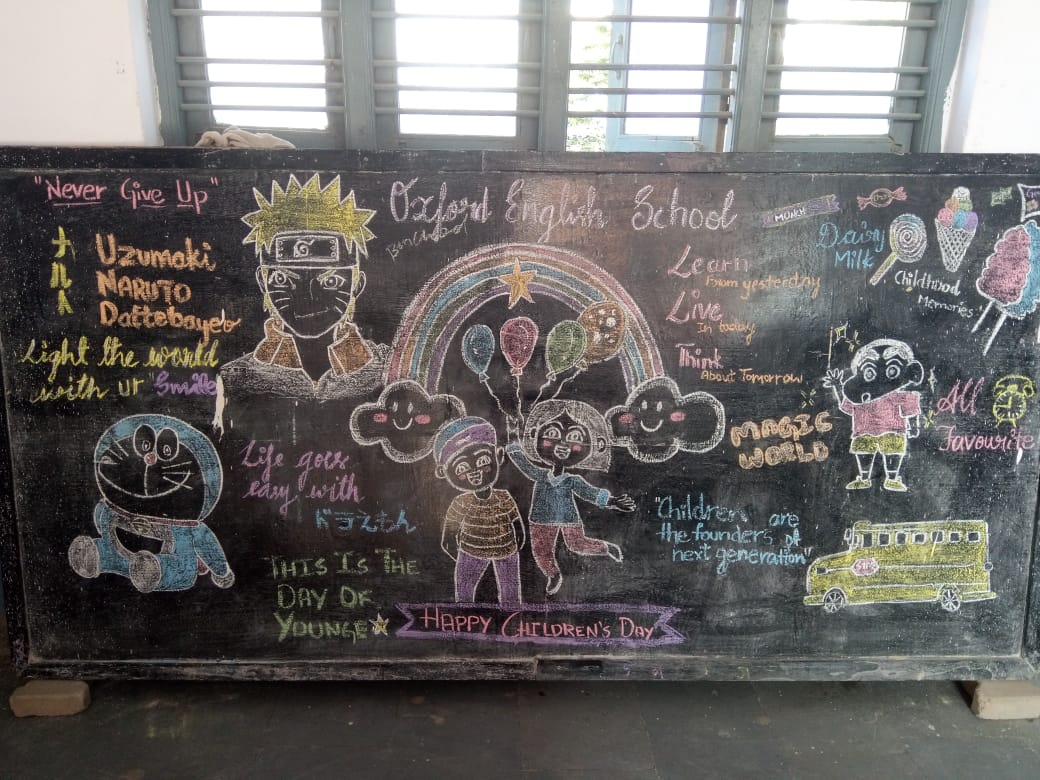 "Never Give Up"
ナルト
Uzumaki
NARUTO
Dattebayo
Light the world
with ur "Smile"
Oxford English School
Learn
From yesterday
Live
In today
Think
About Tomorrow
MUNCH
Dairy
Milk
Childhood
Memories
MAGIC
WORLD
All
Favourite
Life goes
easy with
ドラえもん
THIS IS THE
DAY OF
YOUNGE
"Children are
the founders of
next generation"
HAPPY CHILDREN'S DAY